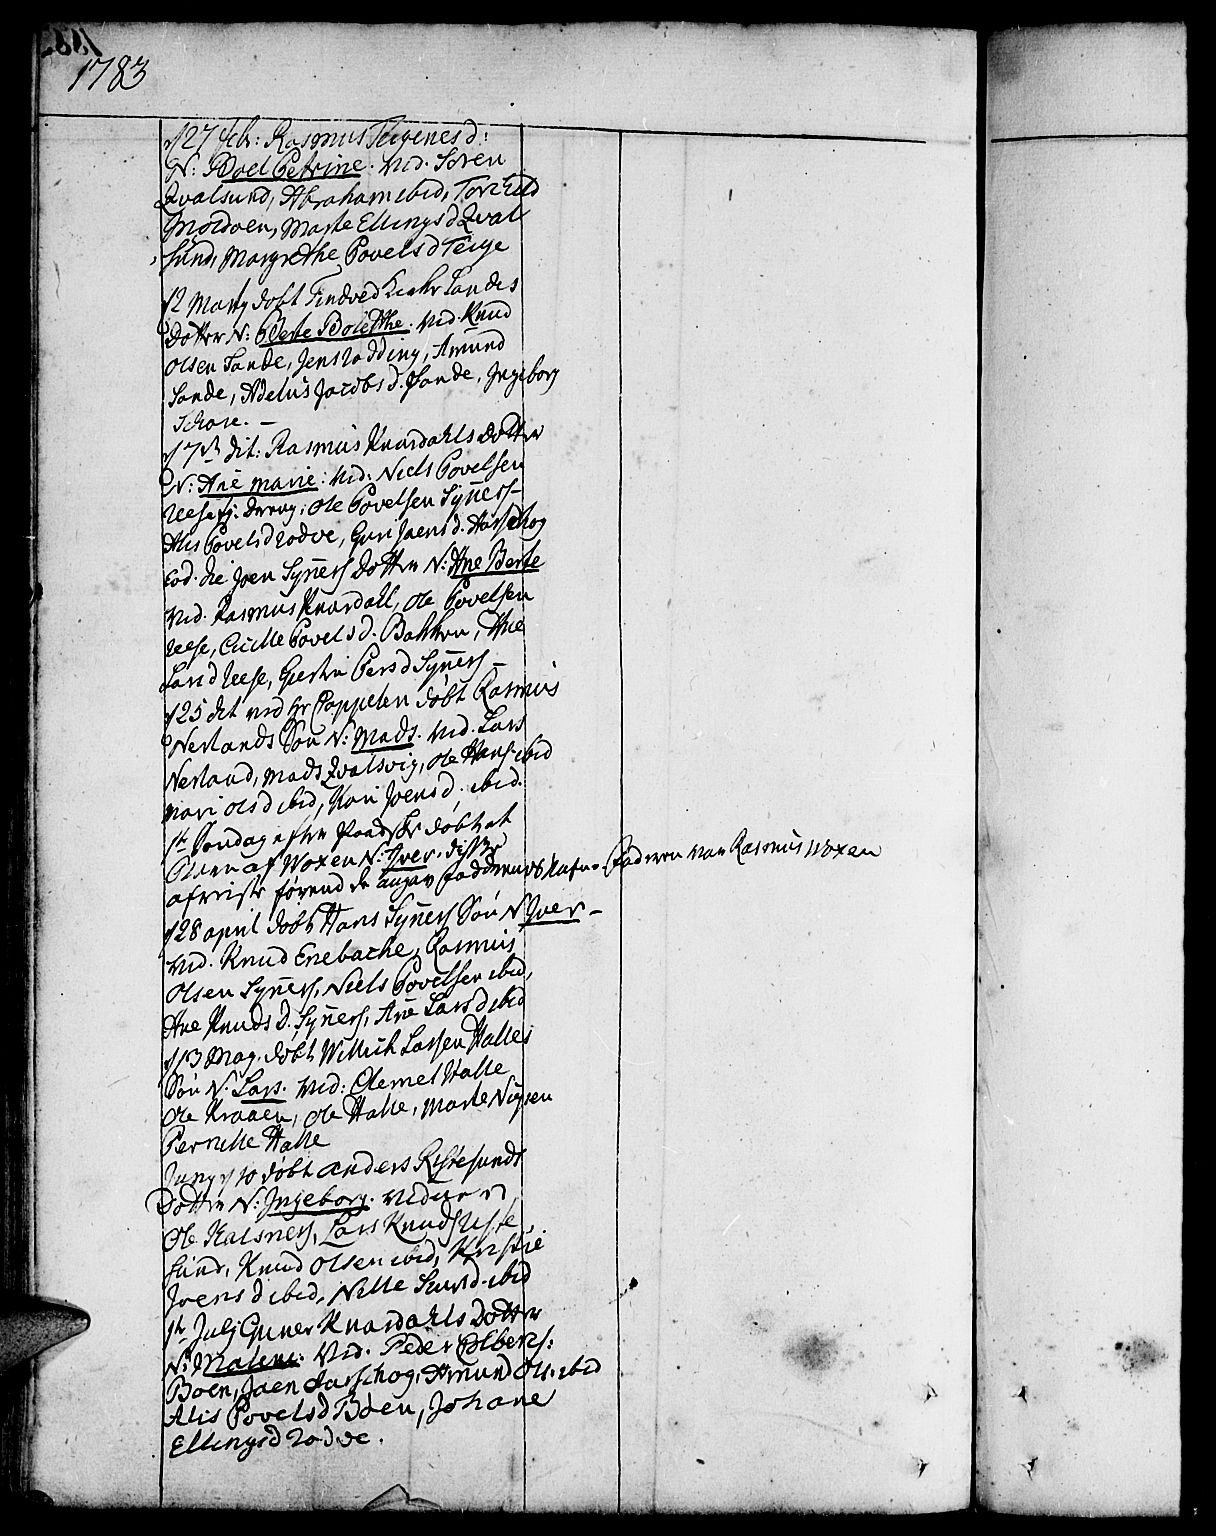 1783
d 27 febr: Rasmus Teigenes d:
N: Boel Petrine. Vid. Sören
Qvalsund, Abraham ibid, Torchild
Moldoen, Marte Ellingsd Qval
sund, Margrethe Povelsd Teige
d 2 Martj döbt Findved Sandes
Dotter N: Berte Bolethe. Vid. Knud
Olsen Sande, Jens Rødding, Amund
Sande, Adelus Jacobsd. Sande, Ingeborg
d 17de dit: Rasmus Knardahls Dotter
N: Ane Marie: Vid: Niels Povelsen
Leese g: dreng, Ole Povelsen Synes
Alis Povelsd Rodve, Guri Joensd. Horschog
Eod. die Joen Synes Dotter N: Ane Berte
Vid. Rasmus Knardall, Ole Povelsen
Leese, Cidle Povelsd. Bakken, Ane
Larsd Leese, Giertru Persd Synes
d 25 dit ved Hr Coppelen döbt Rasmus
Nerlands Sön N: Mads. Vid. Lars
Nerland, Mads Qvalsvig, Ole Hans. ibid
Mari Olsd ibid, Kari Joensd. ibid.
1te Söndag efter Paaske döbt et
af Woxen N: Iver. disse
afreiste förend de angav Faddernes Nafne. Faderen var Rasmus Woxen
d 28 april döbt Hans Synes Sön N Iver
Vid. Knud Enebache, Rasmus
Olsen Synes, Niels Povelsen ibid,
Ane Knudsd. Synes, Ane Larsd ibid
d 13 May. döbt Willich Larsen Halles
Sön N. Lars. Vid: Clemet Halle
Ole Kraaen, Ole Halle, Marte
Pernille Halle
Junij d 10 döbt Anders Ristesunds
Dotter N: Ingeborg. Vidner
Ole Kalsnes, Lars Knuds Riste
sund, Knud Olsen ibid, Kristie
Joensd ibid, Nille Sund. ibid
1te Julj Guner Knardahls Dotter
N: Malene. Vid. Peder Olbers:
Böen, Joen Harschog, Amund Ols. ibid
Alis Povelsd Böen, Johane
Ellingsd Rodve.